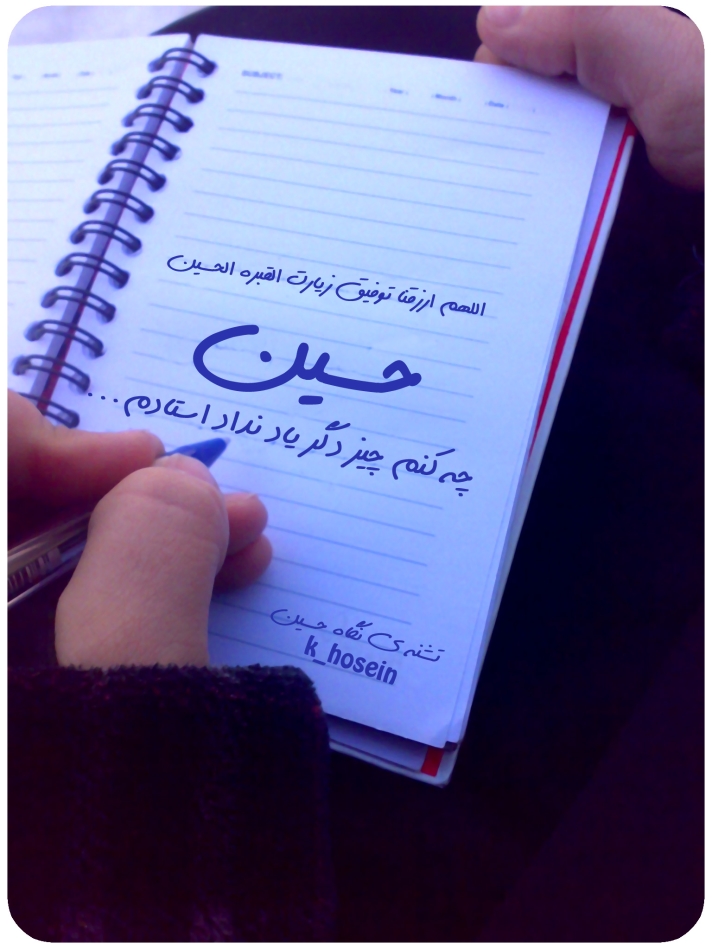 SUBJECT:
اللهم ارزقنا توفیق زیارت القبره الحسین
حسین
چه کنم چیز دگر یاد نداد استادم...
تشنه ی نگاه حسین
k_hosein